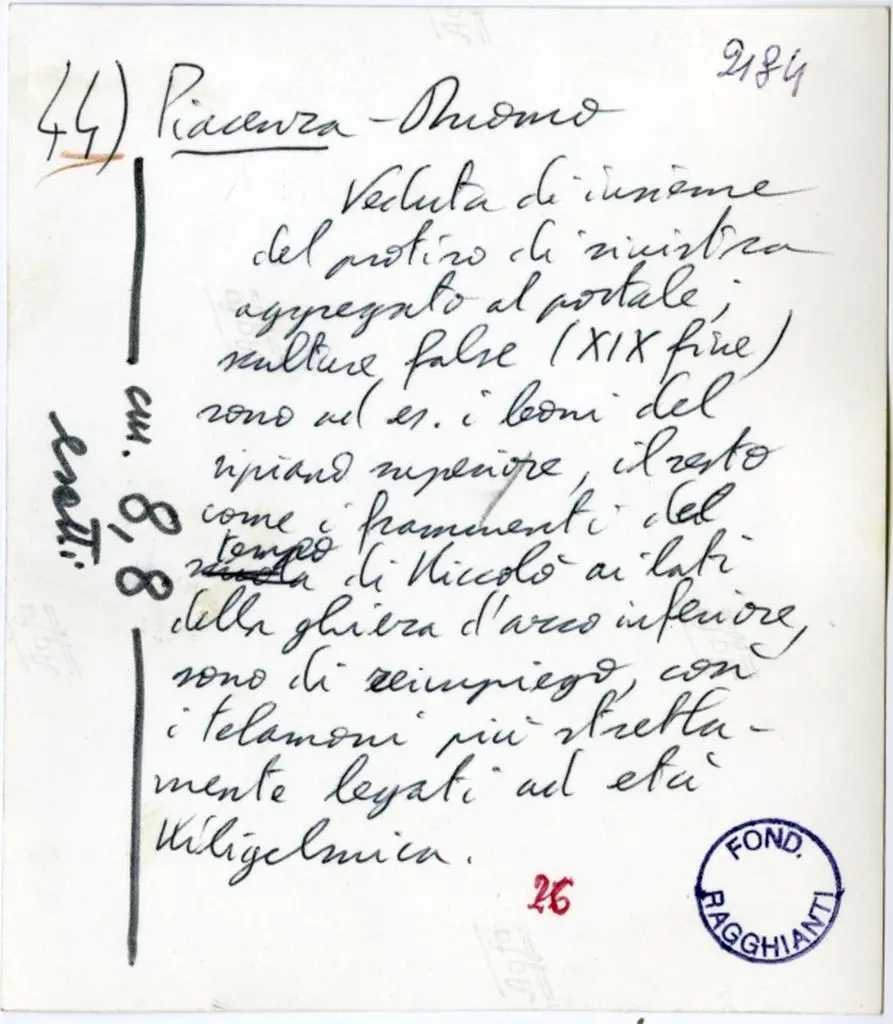 2184
44) Piacenza - Duomo
Veduta di insieme
del protiro di sinistra
aggregato al portale;
sculture false (XIX fine)
sono ad es. i leoni del
ripiano superiore, il resto
come i frammenti del
tempo
di Niccolò ai lati
della ghiera d'arco inferiore,
sono di reimpiego, così
i telamoni più stretta-
mente legati ad età
Wiligelmica.
cm. 8,8
esatti
26
FOND.
RAGGHIANTI